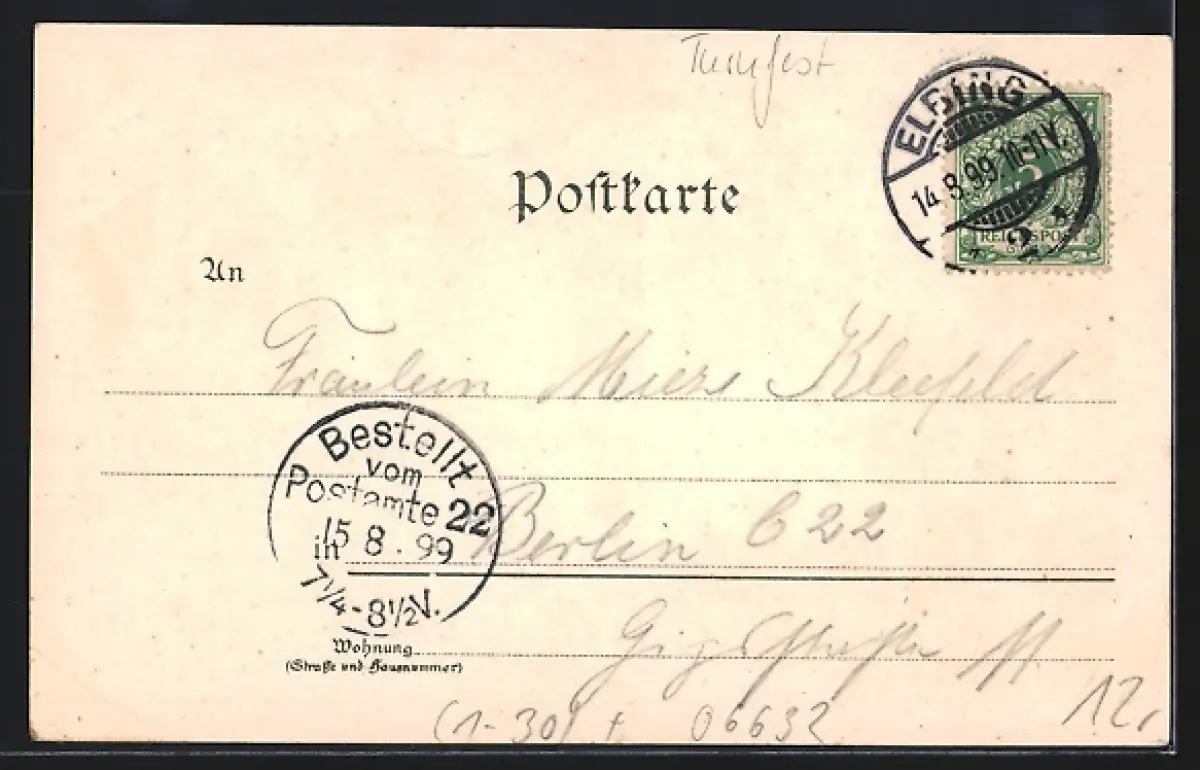 Turnfest
ELBING
14.8.99.10-11V.
* 2 *
5
REICHSPOST
Postkarte
An
Fräulein Mieze Kleefeld
Bestellt
vom
Postamte 22
15 8.99
in
7¼-8½V.
Berlin C 22
Wohnung
(Straße und Hausnummer)
(1-30) + 06632
12,